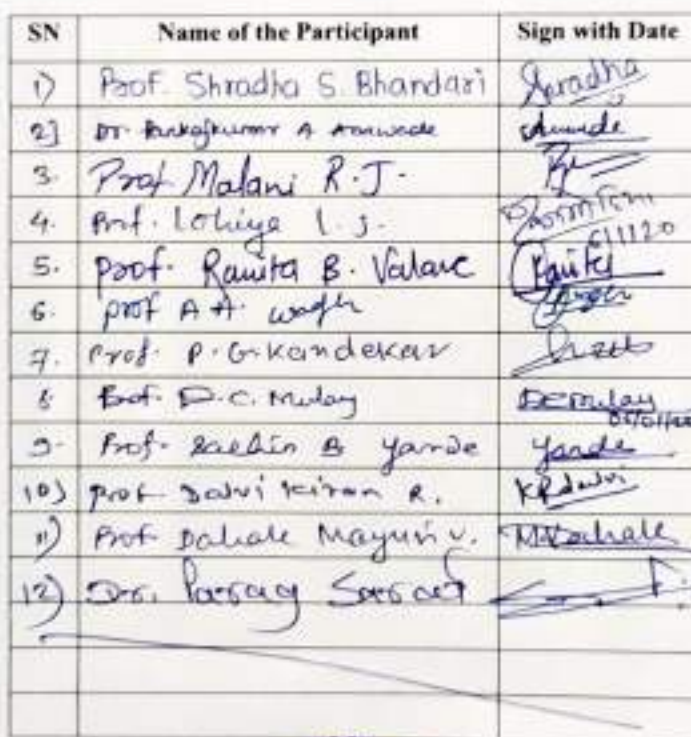 SN Name of the Participant Sign with Date
1) Prof. Shradha S. Bhandari Shradha
2] Dr. Pankajkumar A Anawade
3. Prof Malani R.J.
4. Prof. Lohiya L.J. 6/1/20
5. Prof. Ranita B. Valave Ranita
6. Prof A A. Wagh
7. Prof. P.G. Kandekar
8 Prof. D.C. Mulay DCMulay
9. Prof. Sachin B Yande Yande
10) Prof Dalvi Kiran R. KRdalvi
11) Prof Dahale Mayuri V. MVDahale
12) Dr. Parag Saraf